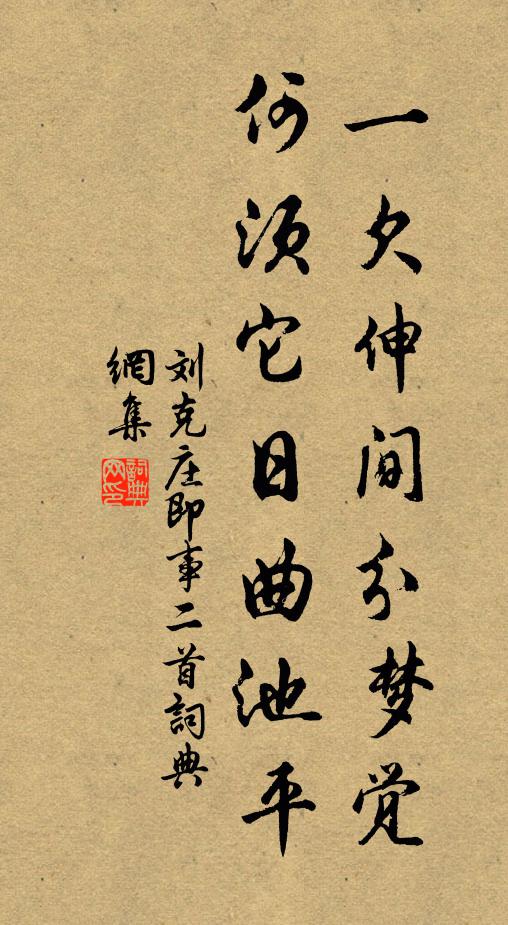 一欠伸间分梦觉
何须它日曲池平
刘克庄即事二首詞典
網集
詞典
网印